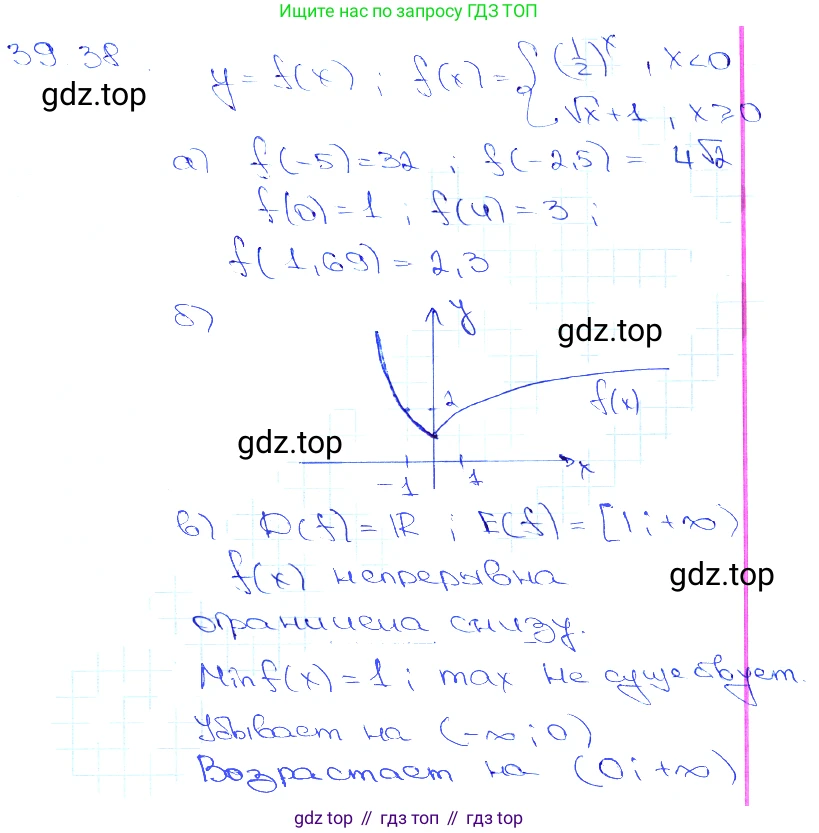 Ищите нас по запросу ГДЗ ТОП
39.38.
gdz.top
y = f(x) ; f(x) = { (1/2)^x , x<0
√x + 1 , x ≥ 0
а) f(-5) = 32 ; f(-2,5) = 4√2
f(0) = 1 ; f(4) = 3 ;
f(1,69) = 2,3
б)
y
gdz.top
2
f(x)
gdz.top
-1 1 x
в) D(f) = R ; E(f) = [1; +∞)
f(x) непрерывна
gdz.top
ограничена снизу.
Min f(x) = 1 ; max не существует.
Убывает на (-∞; 0)
Возрастает на (0; +∞)
gdz top // гдз топ // gdz top // гдз топ